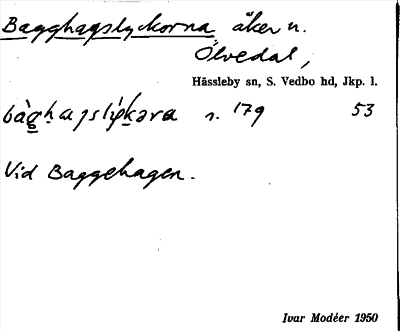 Bagghagslyckorna åker n.
Ölvedal,
Hässleby sn, S. Vedbo hd, Jkp. l.
s. 179 53
Vid Baggehagen.
Ivar Modéer 1950